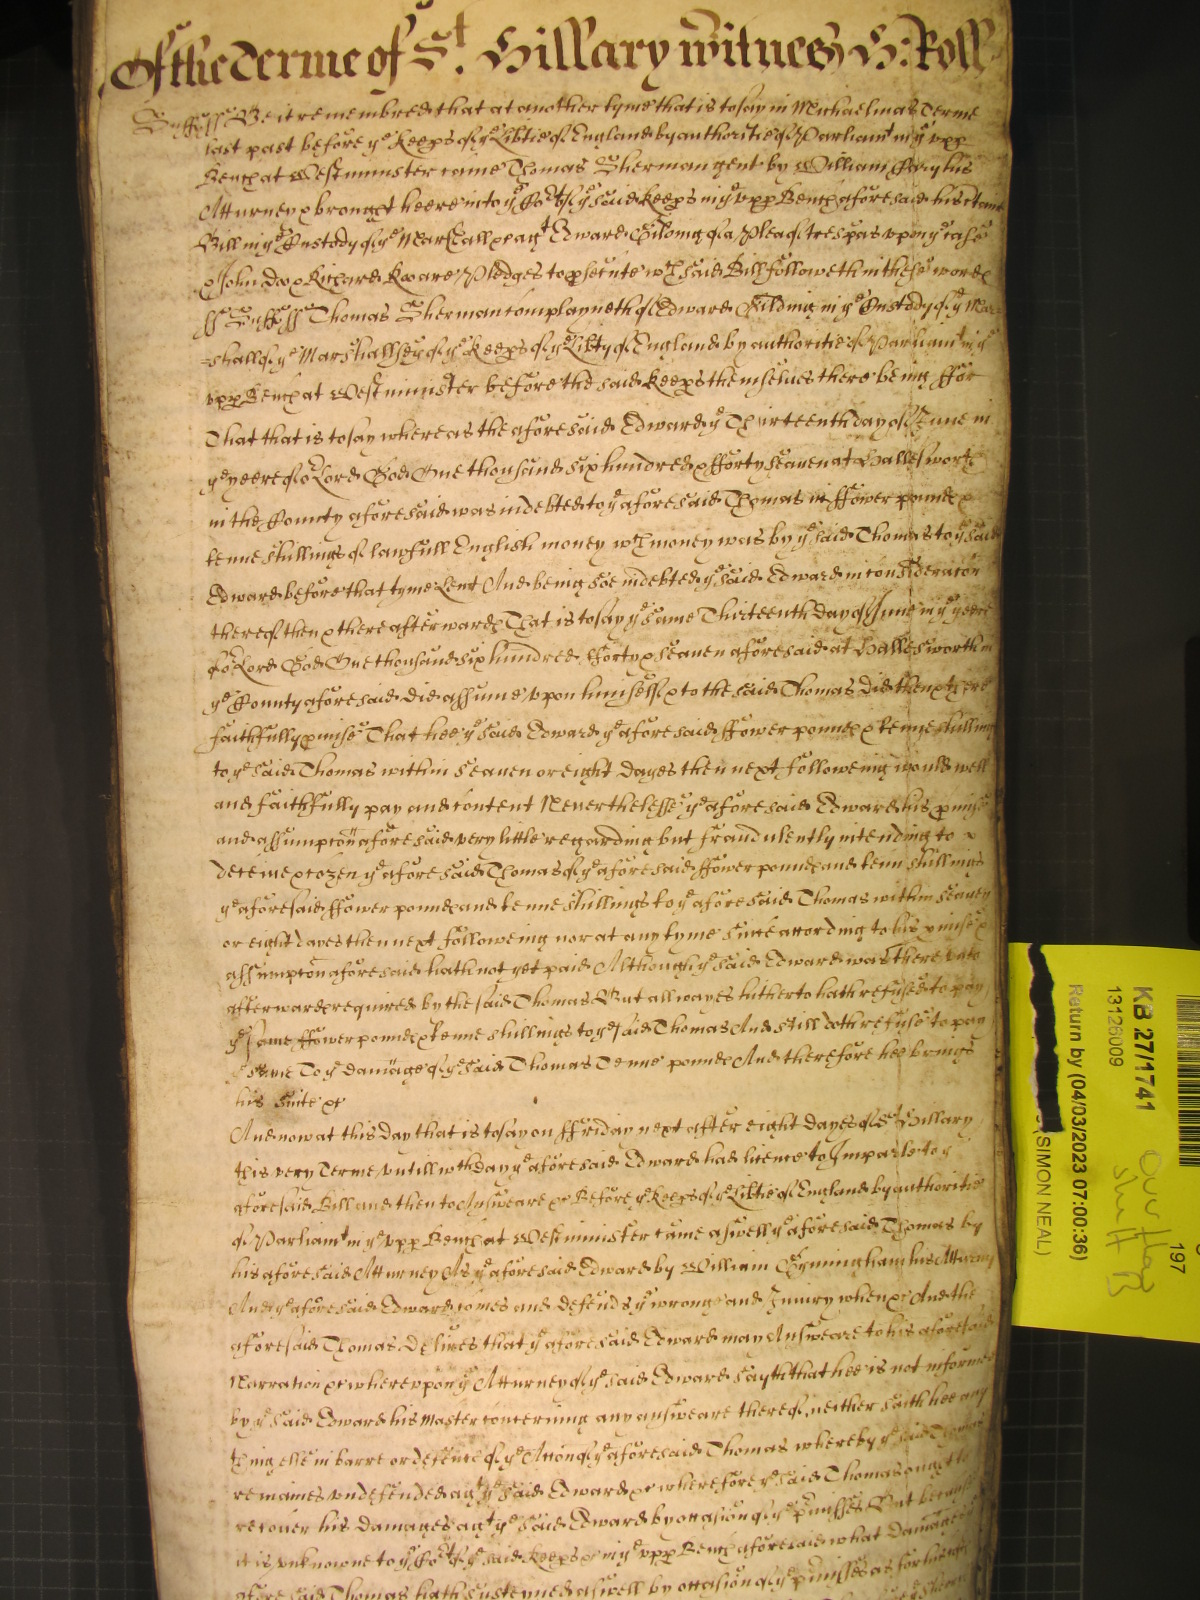 Of the Terme of St. Hillary witnes H: Roll
Suffss Be it remembred that at another tyme that is to say in Michaelmas Terme
last past before ye Keeps of ye Libtie of England by authoritie of Parliamt in ye vpp
Bench at Westminster came Thomas Sherman gent by William his
Atturney & brought heere into ye Court of ye said Keeps in ye vpp Bench aforesaid his certaine
Bill in ye Custody of ye Marshall &c agt Edward of a Plea of trespas vpon ye case
& John Doo & Richard Roo are Pledges to psecute wch said Bill followeth in these words
ss Suffss Thomas Sherman complayneth of Edward Gilding in ye Custody of ye Mar=
=shall of ye Marshallsey of ye Keeps of ye Libty of England by authoritie of Parliamt in ye
vpp Bench at Westminster before the said Keeps themselues there being ffor
That that is to say whereas the aforesaid Edward ye Thirteenth day of June in
ye yeere of or Lord God One thousand six hundred & fforty seaven at Hallesworth
in the County aforesaid was indebted to ye aforesaid Thomas in ffower pounds &
tenne shillings of lawfull English money wch money was by ye said Thomas to ye said
Edward before that tyme Lent And being soe indebted ye said Edward in consideracon
thereof then & there afterwards That is to say ye same Thirteenth day of June in ye yeere
of or Lord God One thousand six hundred fforty & seauen aforesaid at Hallesworth in
ye County aforesaid did assume vpon himselfe & to the said Thomas did then & there
faithfully pmise That hee ye said Edward ye aforesaid ffower pounds & tenne shillings
to ye said Thomas within seauen or eight dayes then next followeing would well
and faithfully pay and content Neuerthelesse ye aforesaid Edward his pmise
and assumpcon aforesaid very little regarding but fraudulently intending to
deceiue & cozen ye aforesaid Thomas of ye aforesaid ffower pounds and tenn shillings
ye aforesaid ffower pounds and tenne shillings to ye aforesaid Thomas within seauen
or eight dayes then next followeing nor at any tyme since according to his pmise &
assumpcon aforesaid hath not yet paid Although ye said Edward was therevnto
afterwards required by the said Thomas But allwayes hitherto hath refused to pay
ye same ffower pounds & tenne shillings to ye said Thomas And still doth refuse to pay
same To ye damage of ye said Thomas Tenne pounds And therefore hee brings
his suite &c
And now at this day that is to say on ffriday next after eight dayes of St Hillary
this very Terme vntill wch day ye aforesaid Edward had licence to Imparle to ye
aforesaid Bill and then to Answeare &c Before ye Keeps of ye Libtie of England by authoritie
of Parliamt in ye vpp Bench at Westminster came aswell ye aforesaid Thomas by
his aforesaid Atturney As ye aforesaid Edward by William his Atturney
And ye aforesaid Edward comes and defends ye wrong and Iniury when &c And the
aforesaid Thomas desires that ye aforesaid Edward may Answeare to his aforesaid
Narration &c wherevpon ye Atturney of ye said Edward sayth that hee is not informed
by ye said Edward his Master concerning any answeare thereof neither saith hee any
thing else in barre or defence of ye Action of ye aforesaid Thomas whereby ye said Thomas
remaines vndefended agt ye said Edward &c wherefore ye said Thomas ought to
recouer his damages agt ye said Edward by occasion of ye pmisses But because
it is vnknowne to ye Court of ye said Keeps &c in ye vpp Bench aforesaid what damages
aforesaid Thomas hath susteyned aswell by occasion of ye pmisses as for his
KB 27/1741
13126009
Return by (04/03/2023 07:00:36)
(SIMON NEAL)
197